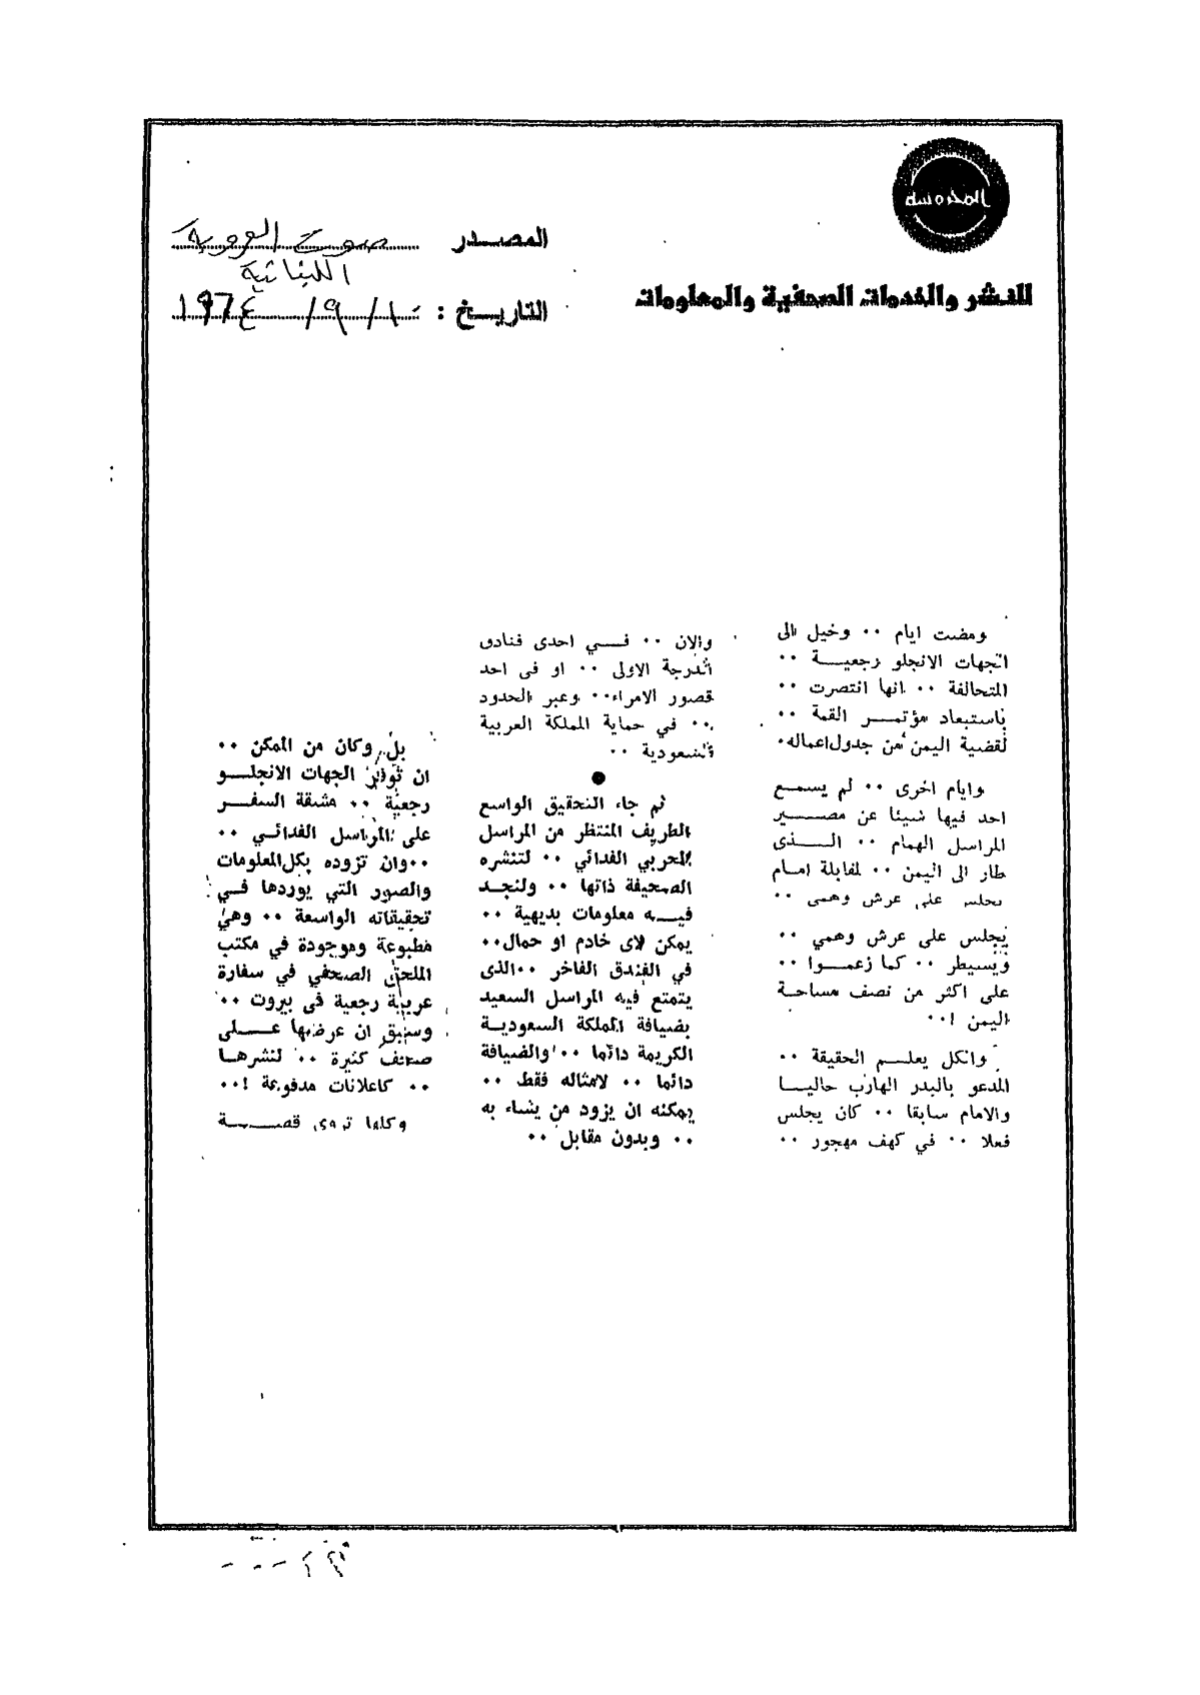 المحروسة
للنشر والخدمات الصحفية والمعلومات
المصدر صوت العروبة
اللبنانية
التاريخ : ١٠ / ٩ / ١٩٦٤
ومضت ايام ٠٠ وخيل الى
الجهات الانجلو رجعية ٠٠
المتحالفة ٠٠ انها انتصرت ٠٠
باستبعاد مؤتمر القمة ٠٠
لقضية اليمن من جدول اعماله٠
وايام اخرى ٠٠ لم يسمع
احد فيها شيئا عن مصير
المراسل الهمام ٠٠ الذى
طار الى اليمن ٠٠ لمقابلة امام
يجلس على عرش وهمى ٠٠
يجلس على عرش وهمي ٠٠
ويسيطر ٠٠ كما زعموا ٠٠
على اكثر من نصف مساحة
اليمن !٠٠
والكل يعلم الحقيقة ٠٠
المدعو بالبدر الهارب حاليا
والامام سابقا ٠٠ كان يجلس
فعلا ٠٠ في كهف مهجور ٠٠
والان ٠٠ في احدى فنادق
الدرجة الاولى ٠٠ او فى احد
قصور الامراء٠٠ وعبر الحدود
٠٠ في حماية المملكة العربية
السعودية ٠٠
ثم جاء التحقيق الواسع
الطريف المنتظر من المراسل
الحربي الفدائي ٠٠ لتنشره
الصحيفة ذاتها ٠٠ ولنجد
فيه معلومات بديهية ٠٠
يمكن لاى خادم او حمال٠٠
في الفندق الفاخر ٠٠الذى
يتمتع فيه المراسل السعيد
بضيافة المملكة السعودية
الكريمة دائما ٠٠ والضيافة
دائما ٠٠ لامثاله فقط ٠٠
يمكنه ان يزود من يشاء به
٠٠ وبدون مقابل ٠٠
بل وكان من الممكن ٠٠
ان توفر الجهات الانجلو
رجعية ٠٠ مشقة السفر
على المراسل الفدائي ٠٠
٠٠وان تزوده بكل المعلومات
والصور التي يوردها في
تحقيقاته الواسعة ٠٠ وهي
مطبوعة وموجودة في مكتب
الملحق الصحفي في سفارة
عربية رجعية فى بيروت ٠٠
وسبق ان عرضها على
صحف كثيرة ٠٠ لنشرها
٠٠ كاعلانات مدفوعة !٠٠
وكلها تروى قصة